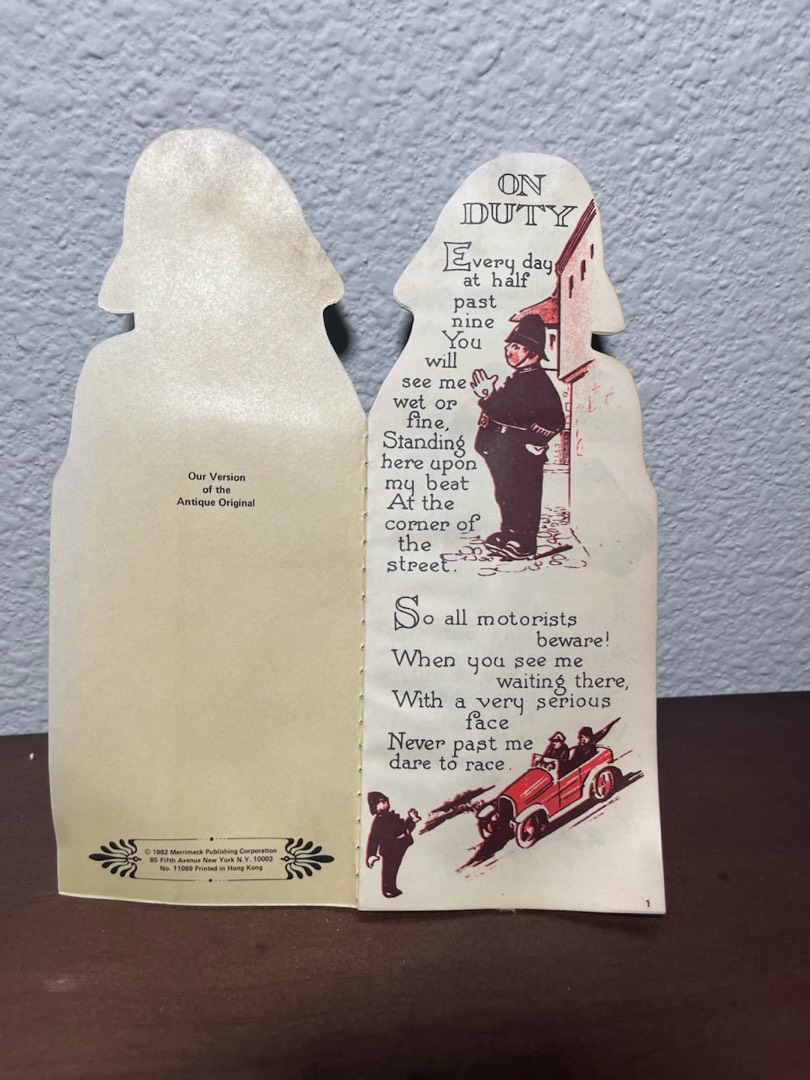 Our Version
of the
Antique Original
© 1982 Merrimack Publishing Corporation
85 Fifth Avenue New York N.Y. 10003
No. 11089 Printed in Hong Kong
ON
DUTY
Every day
at half
past
nine
You
will
see me
wet or
fine,
Standing
here upon
my beat
At the
corner of
the
street.
So all motorists
beware!
When you see me
waiting there,
With a very serious
face
Never past me
dare to race.
1